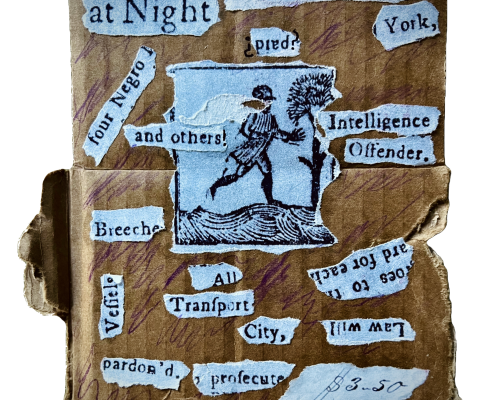 at Night
York,
¿pıɐd?
four Negro
and others!
Intelligence
Offender.
Breeche
All
Veſſels
Tranſport
oes to th
ard for each
City,
Law will
pardon'd.
, proſecute
$3-50